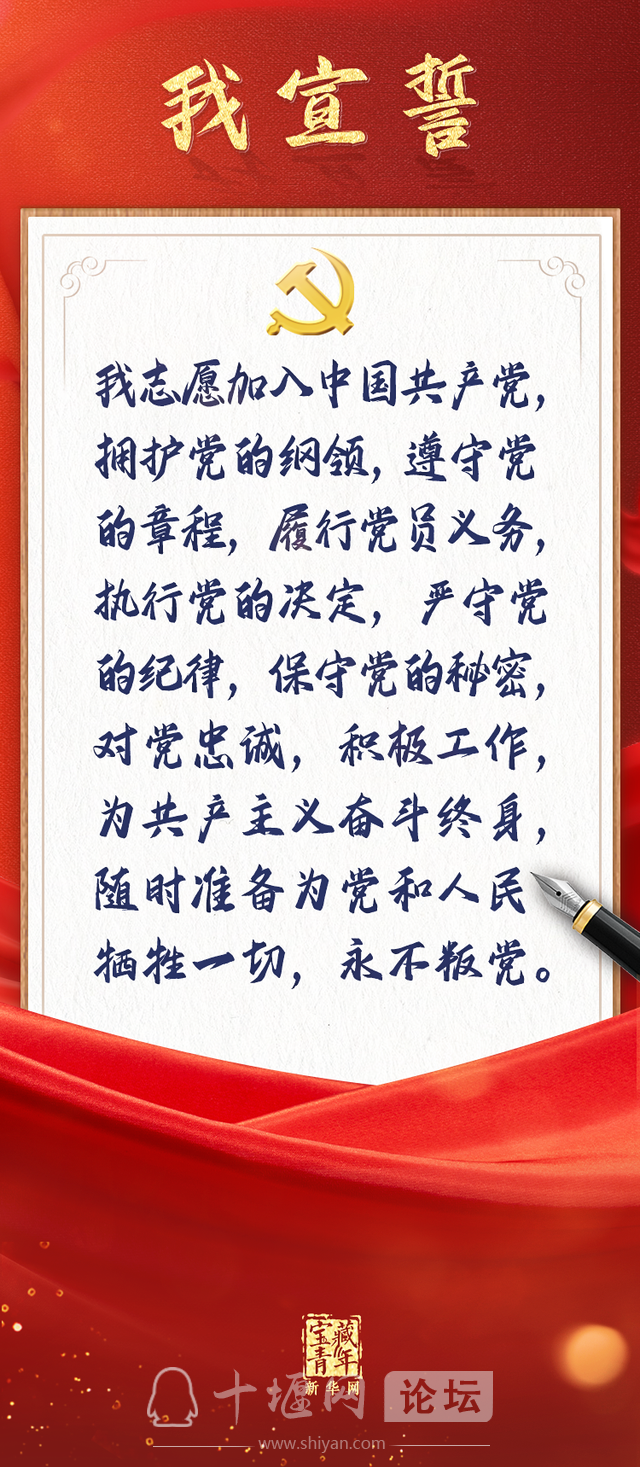 我宣誓
我志愿加入中国共产党，
拥护党的纲领，遵守党
的章程，履行党员义务，
执行党的决定，严守党
的纪律，保守党的秘密，
对党忠诚，积极工作，
为共产主义奋斗终身，
随时准备为党和人民
牺牲一切，永不叛党。
宝藏
青年
新华网
十堰网 论坛
www.shiyan.com